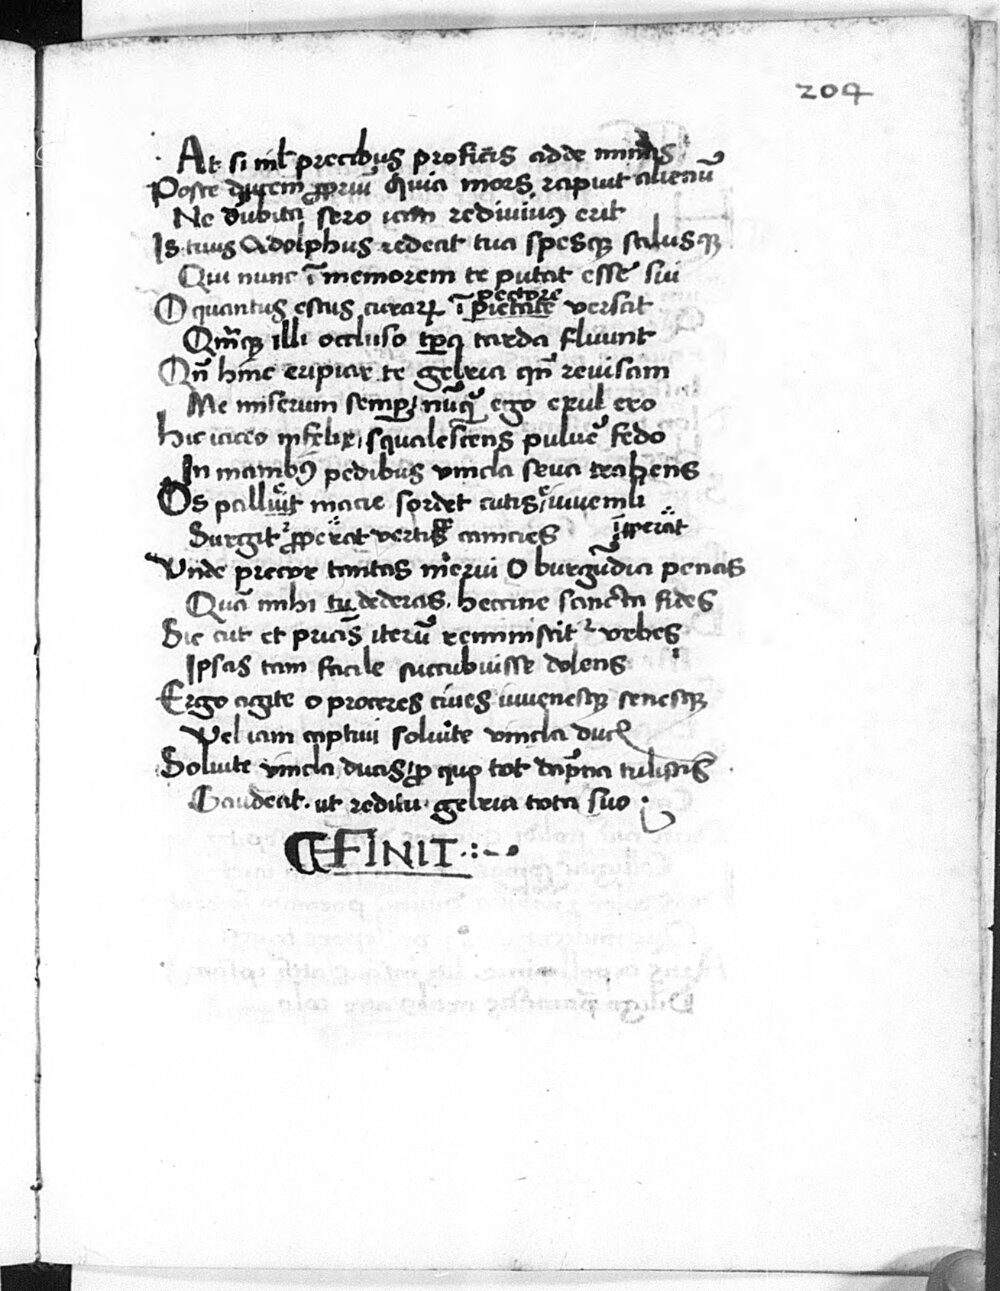 204
At si nil precibus proficis adde minas
Posce ducem ꝓpriū quia mors rapuit alienū
Ne dubita sero iam rediuiuꝰ erit
Is tuus Adolphus redeat tua spesqꝫ salusqꝫ
Qui nunc īmemorem te putat esse sui
O quantus estus curarꝝ ī pectore versat
Qm̄qꝫ illi occluso tp̄a tarda fluunt
Qn̄ hinc eripiar te gelria qn̄ reuisam
Me miserum semꝑ nūqꝫ ego exul ero
Hic iaceo infelix squalescens puluere fedo
In manibꝰ pedibus vincla seua trahens
Os palluit macie sordet cutis iuuenili
Surgit ꝓperat vertice canicies īperat
Vnde precor tantas merui O burgūdia penas
Quā mihi tu dederas heccine sancta fides
Sic ait et priās iterū reminiscit᷑ vrbes
Ipsas tam facile succubuisse dolens
Ergo agite o proceres ciues iuuenesqꝫ senesqꝫ
Vel iam captiui soluite vincla ducis
Soluite vincla ducis ꝓ quo tot dāpna tulistis
Gaudeat ut reditu gelria tota suo
FINIT